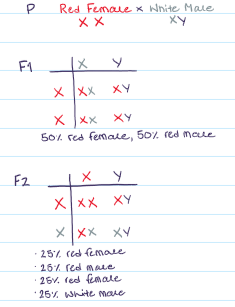 P Red Female x White Male
XX XY
F1
X Y
X XX XY
X XX XY
50% red female, 50% red male
F2
X Y
X XX XY
X XX XY
· 25% red female
· 25% red male
· 25% red female
· 25% white male